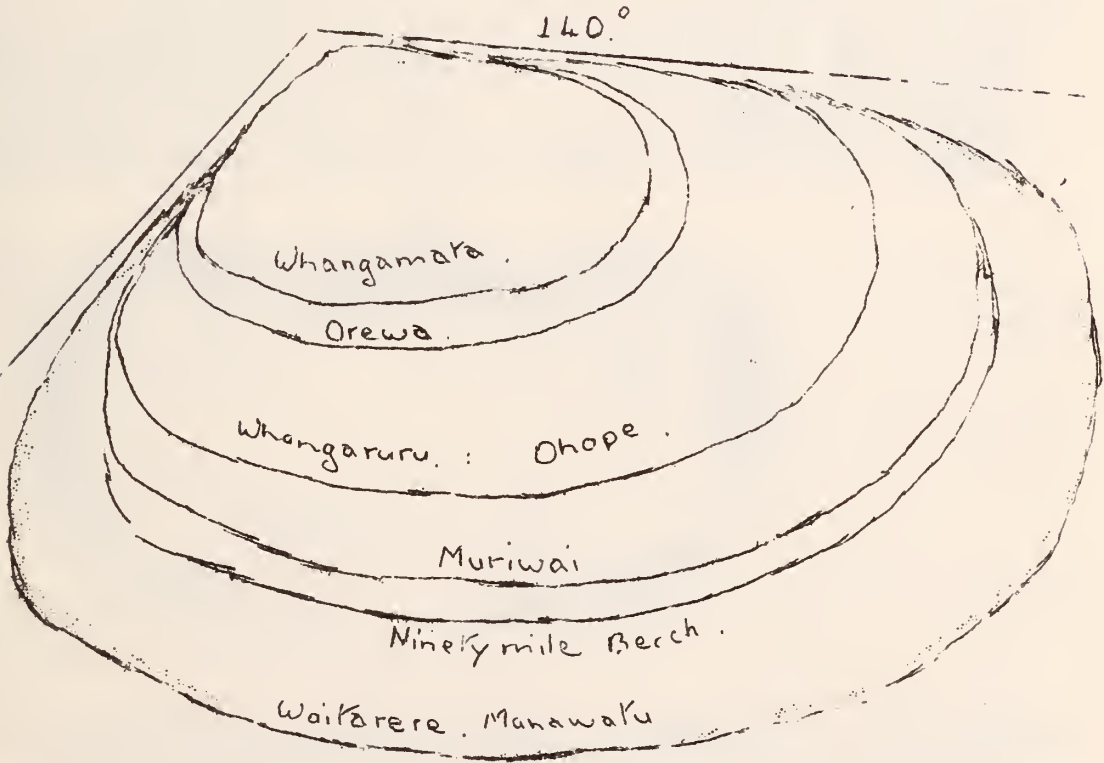 140.°
Whangamata.
Orewa.
Whangaruru. : Ohope.
Muriwai
Ninety mile Beach.
Waitarere. Manawatu